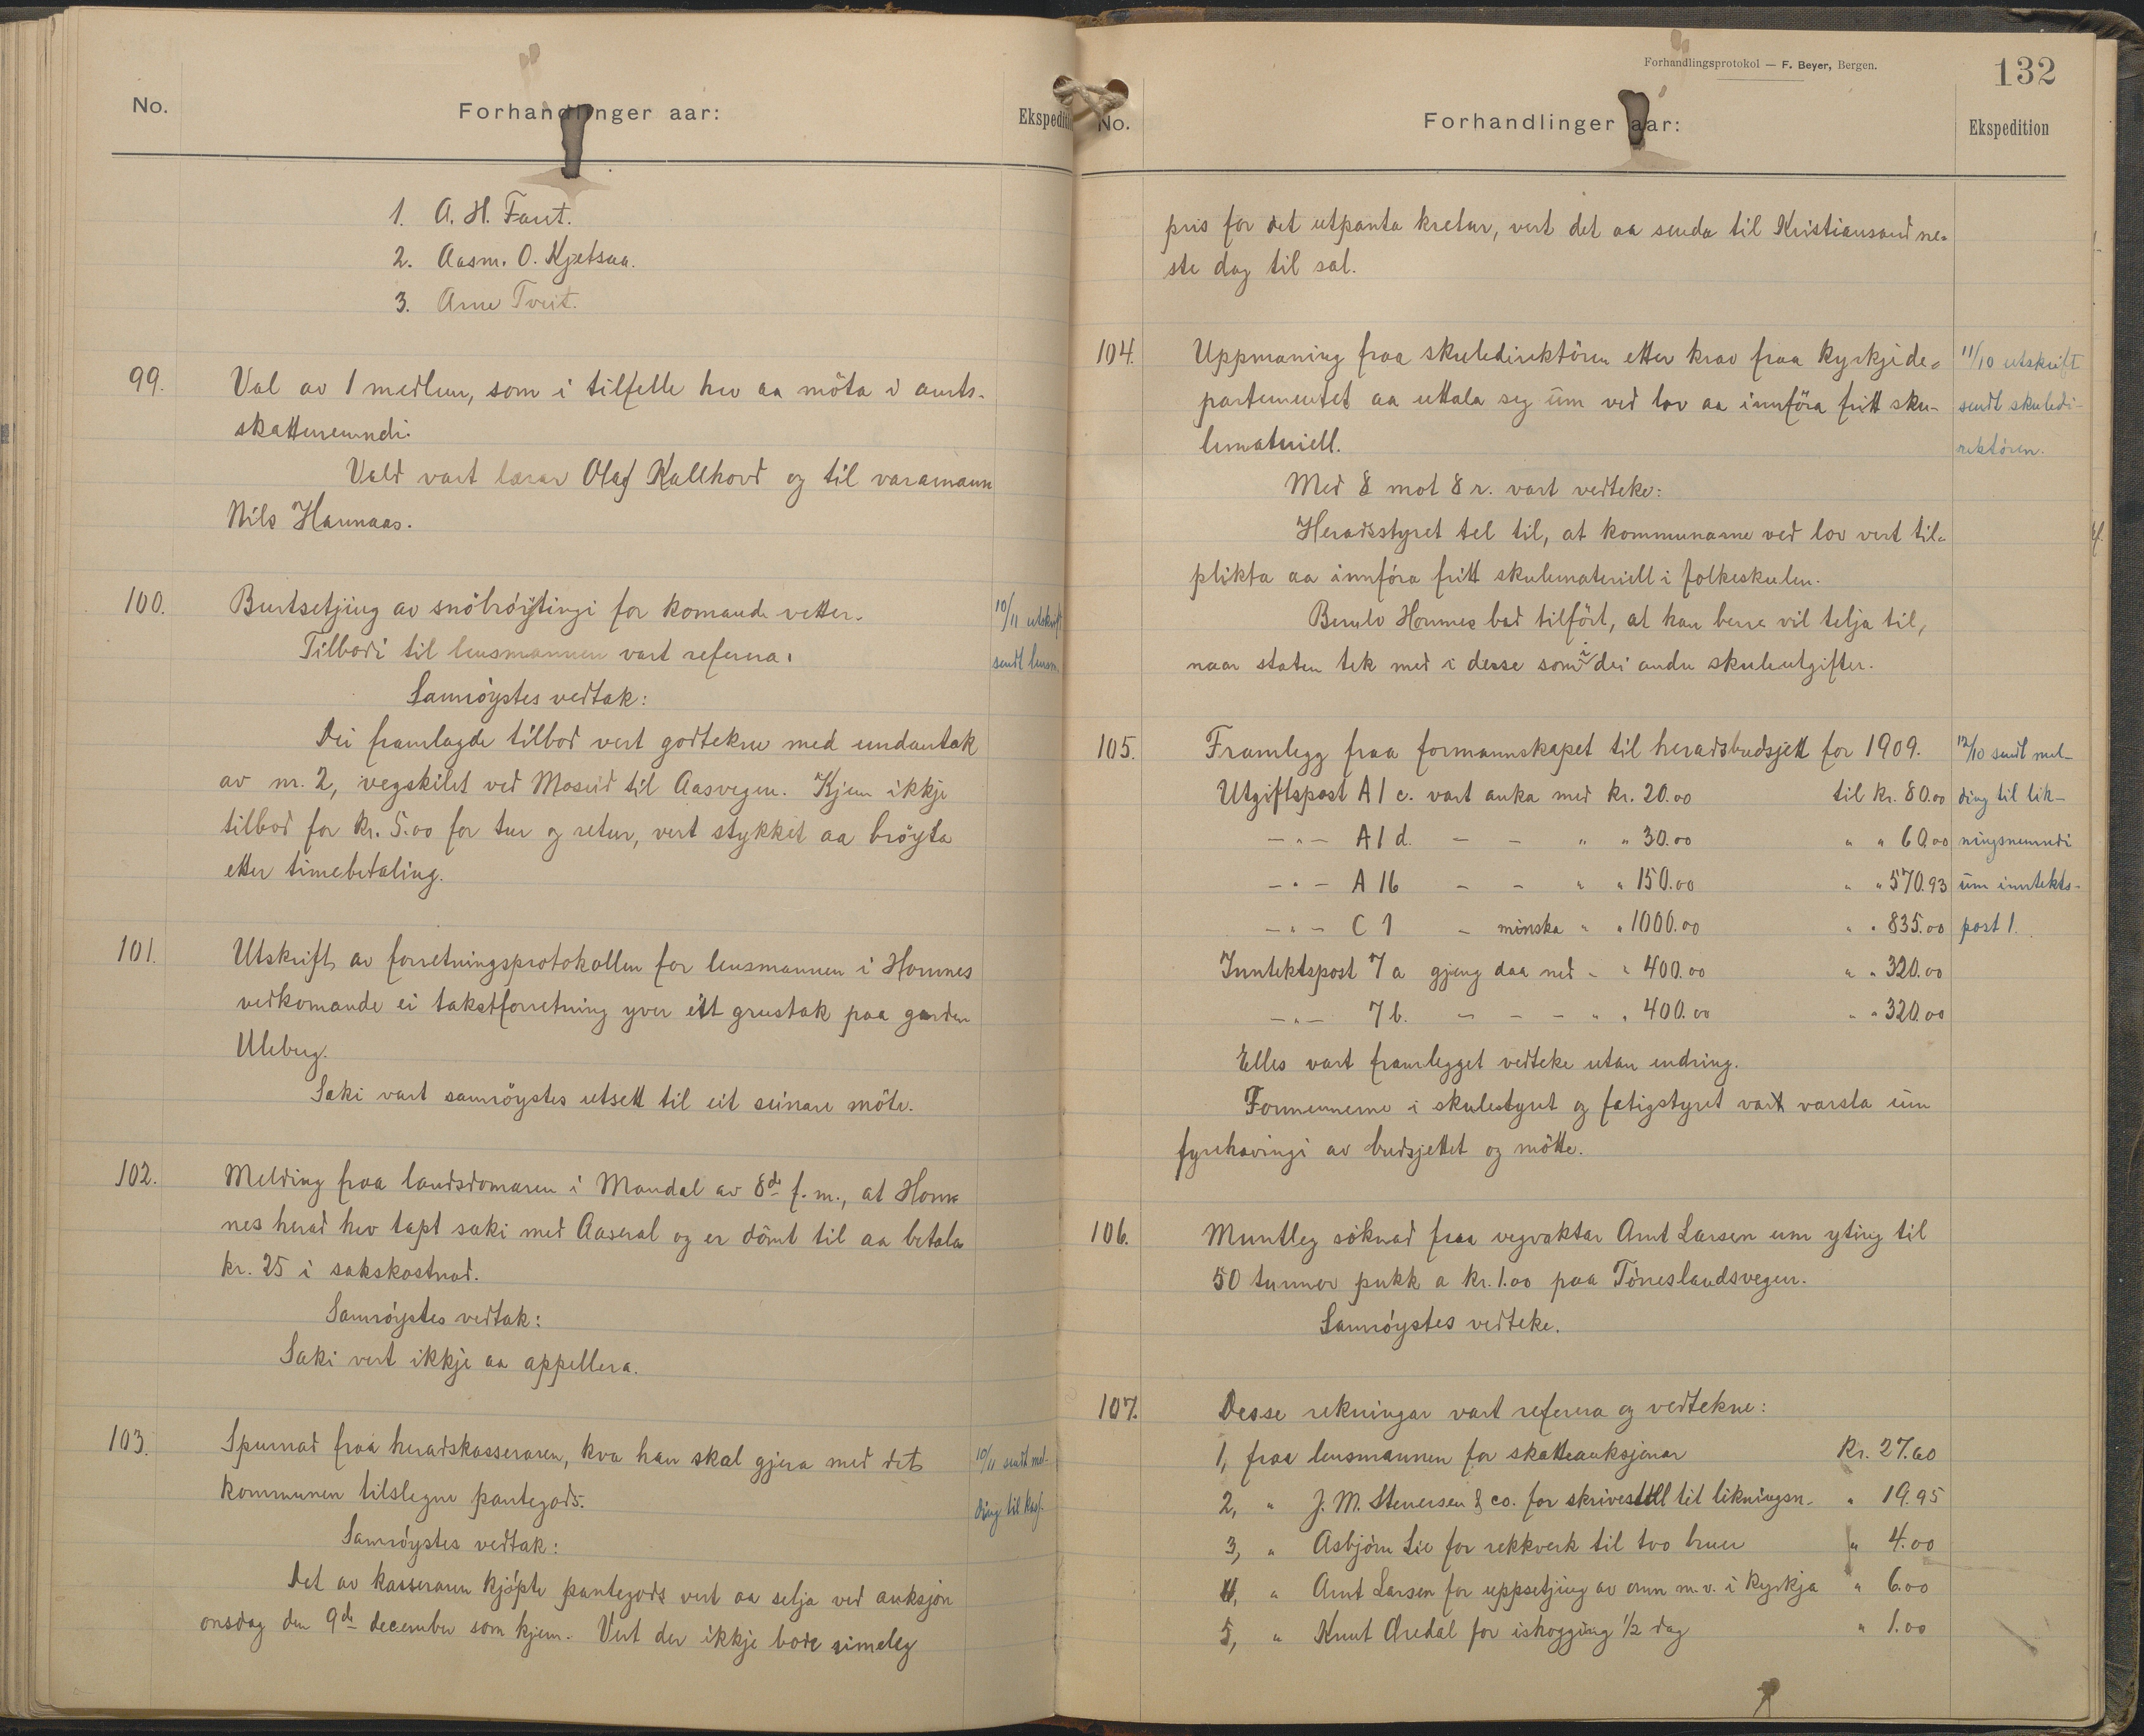 No.
Forhandlinger aar:
Ekspediti
1. A. H. Faret.
2. Aasm. O. Kjetsaa.
3. Arne Tveit.
99.
Val av 1 medlem, som i tilfelle hev aa möta i amts-
skattenemndi.
Vald vart lærar Olaf Kallhovd og til varamann
Nils Hannaas.
100.
Burtsetjing av snöbröytingi for komande vetter.
Tilbodi til lensmannen vart referera.
Samröystes vedtak:
Dei framlagde tilbod vert godtekne med undantak
av nr. 2, vegskilet ved Moseid til Aasvegen. Kjem ikkje
tilbod for kr. 5.00 for tur og retur, vert stykket aa bröyta
etter timebetaling.
10/11 utskrift
sendt lensm.
101.
Utskrift av forretningsprotokollen for lensmannen i Hornnes
vedkomande ei takstforretning yver eitt grustak paa garden
Uleberg.
Saki vart samröystes utsett til eit seinare möte.
102.
Melding fraa landsdomaren i Mandal av 8de f. m., at Horn-
nes herad hev tapt saki med Aaseral og er dömt til aa betala
kr. 25 i sakskostnad.
Samröystes vedtak:
Saki vert ikkje aa appellera.
103.
Spurnad fraa heradskasseraren, kva han skal gjera med det
kommunen tilslegne pantegods.
Samröystes vedtak:
Det av kasseraren kjöpte pantegods vert aa selja ved auksjon
onsdag den 9de december som kjem. Vert der ikkje bode rimeleg
10/11 sendt mel-
ding til kass.
Forhandlingsprotokol — F. Beyer, Bergen.
132
No.
Forhandlinger aar:
Ekspedition
pris for det utpanta kretur, vert det aa senda til Kristiansand ne-
ste dag til sal.
104.
Uppmaning fraa skuledirektören etter krav fraa kyrkjede-
partementet aa uttala seg um ved lov aa innföra fritt sku-
lemateriell.
Med 8 mot 8 r. vart vedteke:
Heradsstyret tel til, at kommunarne ved lov vert til-
plikta aa innföra fritt skulemateriell i folkeskulen.
Hornnes bad tilfört, at han berre vil telja til,
naar staten tek med i desse som i dei andre skuleutgifter.
11/10 utskrift
sendt skuledi-
rektören.
105.
Framlegg fraa formannskapet til heradsbudsjett for 1909.
Utgiftspost A 1 c. vart auka med kr. 20.00 til kr. 80.00
— " — A 1 d. — — " " 30.00 " " 60.00
— " — A 16 — — " " 150.00 " " 570.93
— " — C 1 — minska " " 1000.00 " " 835.00
Inntektspost 7 a gjeng daa ned " " 400.00 " " 320.00
— " — 7 b. — — — " " 400.00 " " 320.00
Elles vart framlegget vedteke utan endring.
Formennerne i skulestyret og fatigstyret vart varsla um
fyrehavingi av budsjettet og mötte.
12/10 sendt mel-
ding til lik-
ningsnemndi
um inntekts-
post 1.
106.
Muntleg söknad fraa vegvaktar Arnt Larsen um yting til
50 tunnor pukk a kr. 1.00 paa Töneslandsvegen.
Samröystes vedteke.
107.
Desse rekningar vart referera og vedtekne:
1, fraa lensmannen for skatteauksjonar Kr. 27.60
2, " J. M. Stenersen & co. for skrivestell til likningsn. " 19.95
3, " Asbjörn Lie for rekkverk til tvo bruer " 4.00
4, " Arnt Larsen for uppsetjing av omn m. v. i kyrkja " 6.00
5, " Knut Aredal for ishogging 1/2 dag " 1.00